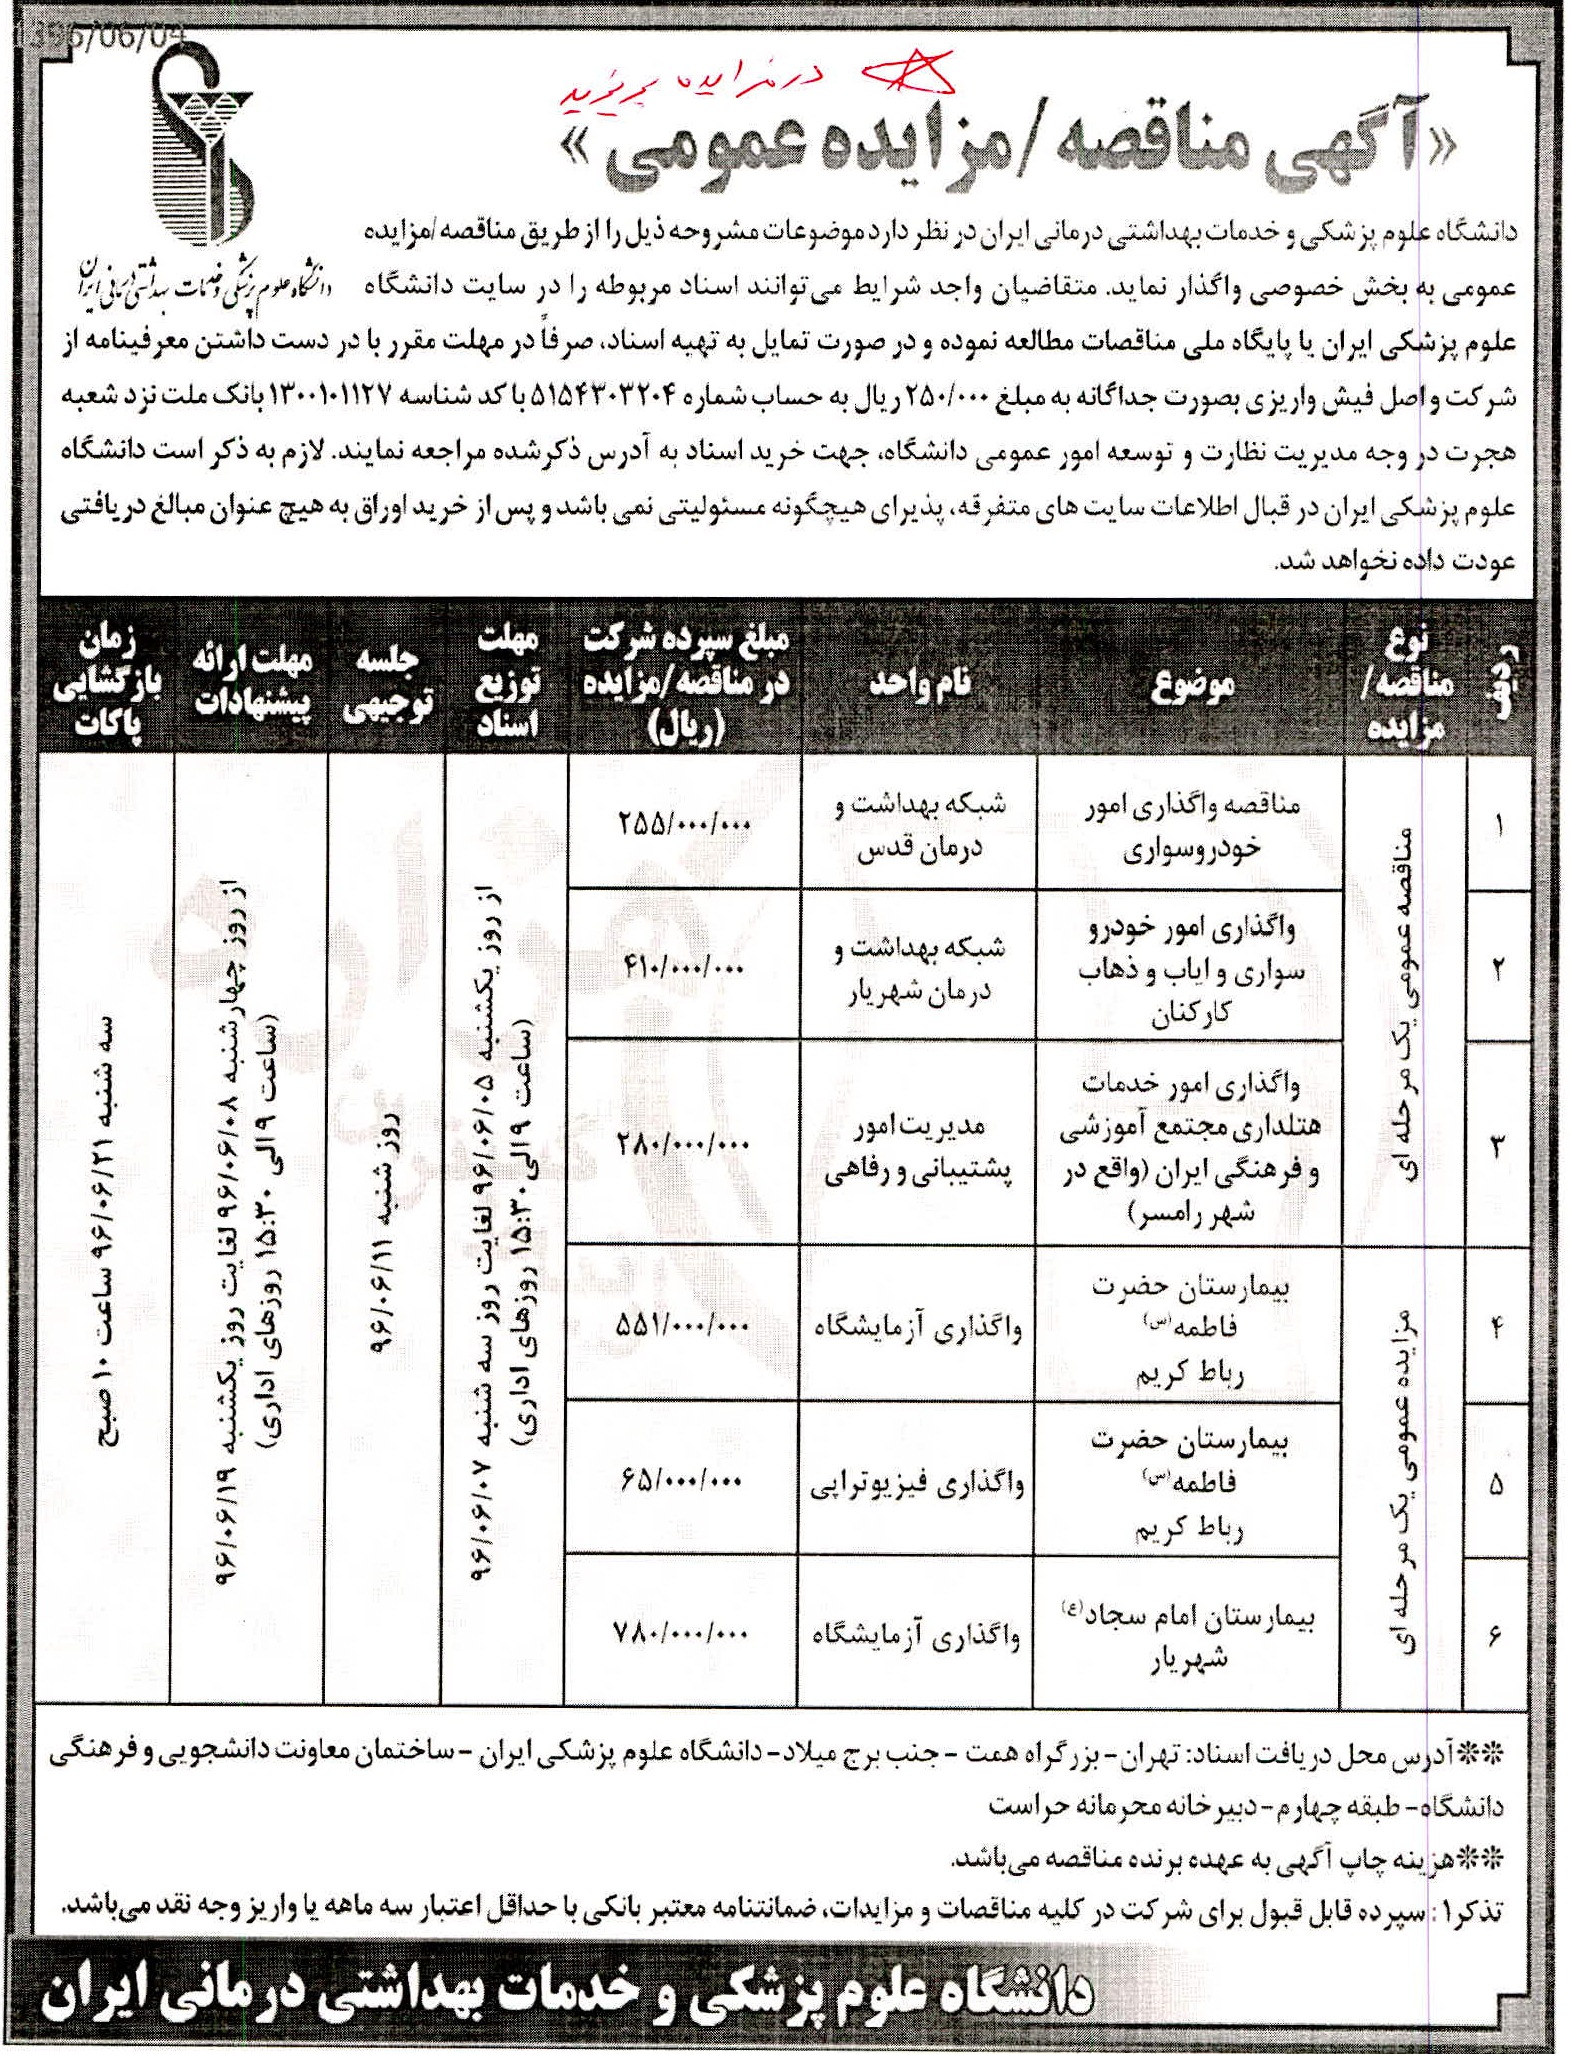 1396/06/04
در مزایده بریزید
«آگهی مناقصه /مزایده عمومی»
دانشگاه علوم پزشکی و خدمات بهداشتی درمانی ایران
دانشگاه علوم پزشکی و خدمات بهداشتی درمانی ایران در نظر دارد موضوعات مشروحه ذیل را از طریق مناقصه /مزایده
عمومی به بخش خصوصی واگذار نماید. متقاضیان واجد شرایط می‌توانند اسناد مربوطه را در سایت دانشگاه
علوم پزشکی ایران یا پایگاه ملی مناقصات مطالعه نموده و در صورت تمایل به تهیه اسناد، صرفاً در مهلت مقرر با در دست داشتن معرفینامه از
شرکت و اصل فیش واریزی بصورت جداگانه به مبلغ ۲۵۰/۰۰۰ ریال به حساب شماره ۵۱۵۴۳۰۳۲۰۴ با کد شناسه ۱۳۰۰۱۰۱۱۲۷ بانک ملت نزد شعبه
هجرت در وجه مدیریت نظارت و توسعه امور عمومی دانشگاه، جهت خرید اسناد به آدرس ذکرشده مراجعه نمایند. لازم به ذکر است دانشگاه
علوم پزشکی ایران در قبال اطلاعات سایت های متفرقه، پذیرای هیچگونه مسئولیتی نمی باشد و پس از خرید اوراق به هیچ عنوان مبالغ دریافتی
عودت داده نخواهد شد.
ردیف
نوع
مناقصه/
مزایده
موضوع
نام واحد
مبلغ سپرده شرکت
در مناقصه/مزایده
(ریال)
مهلت
توزیع
اسناد
جلسه
توجیهی
مهلت ارائه
پیشنهادات
زمان
بازگشایی
پاکات
مناقصه عمومی یک مرحله ای
۱
مناقصه واگذاری امور
خودروسواری
شبکه بهداشت و
درمان قدس
۲۵۵/۰۰۰/۰۰۰
۲
واگذاری امور خودرو
سواری و ایاب و ذهاب
کارکنان
شبکه بهداشت و
درمان شهریار
۴۱۰/۰۰۰/۰۰۰
۳
واگذاری امور خدمات
هتلداری مجتمع آموزشی
و فرهنگی ایران (واقع در
شهر رامسر)
مدیریت امور
پشتیبانی و رفاهی
۲۸۰/۰۰۰/۰۰۰
مزایده عمومی یک مرحله ای
۴
بیمارستان حضرت
فاطمه(س)
رباط کریم
واگذاری آزمایشگاه
۵۵۱/۰۰۰/۰۰۰
۵
بیمارستان حضرت
فاطمه(س)
رباط کریم
واگذاری فیزیوتراپی
۶۵/۰۰۰/۰۰۰
۶
بیمارستان امام سجاد(ع)
شهریار
واگذاری آزمایشگاه
۷۸۰/۰۰۰/۰۰۰
از روز یکشنبه ۹۶/۰۶/۰۵ لغایت روز سه شنبه ۹۶/۰۶/۰۷
(ساعت ۹ الی ۱۵:۳۰ روزهای اداری)
روز شنبه ۹۶/۰۶/۱۱
از روز چهارشنبه ۹۶/۰۶/۰۸ لغایت روز یکشنبه ۹۶/۰۶/۱۹
(ساعت ۹ الی ۱۵:۳۰ روزهای اداری)
سه شنبه ۹۶/۰۶/۲۱ ساعت ۱۰ صبح
**آدرس محل دریافت اسناد: تهران- بزرگراه همت - جنب برج میلاد- دانشگاه علوم پزشکی ایران -ساختمان معاونت دانشجویی و فرهنگی
دانشگاه- طبقه چهارم- دبیرخانه محرمانه حراست
**هزینه چاپ آگهی به عهده برنده مناقصه می‌باشد.
تذکر۱: سپرده قابل قبول برای شرکت در کلیه مناقصات و مزایدات، ضمانتنامه معتبر بانکی با حداقل اعتبار سه ماهه یا واریز وجه نقد می‌باشد.
دانشگاه علوم پزشکی و خدمات بهداشتی درمانی ایران